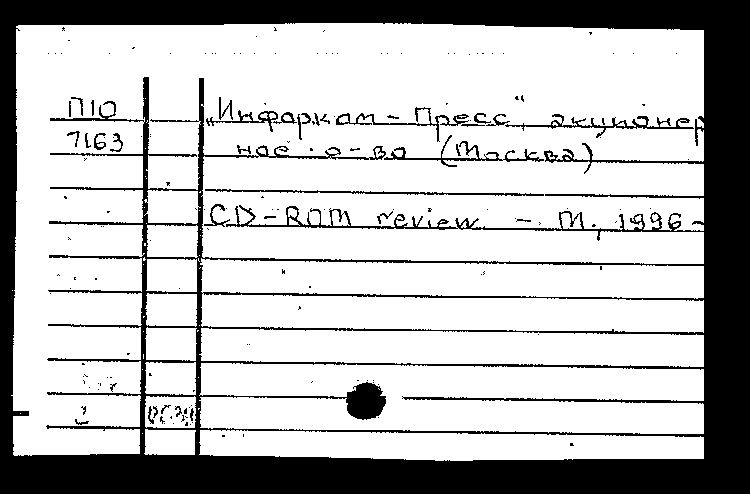 П10 „Инфоркам – Пресс", акционер
7163 ное о-во (Москва)
CD-ROM review. – М., 1996–